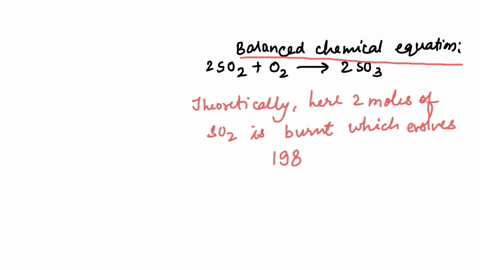 Balanced chemical equation:
2SO₂ + O₂ ⟶ 2SO₃
Theoretically, here 2 moles of
SO₂ is burnt which evolves
198